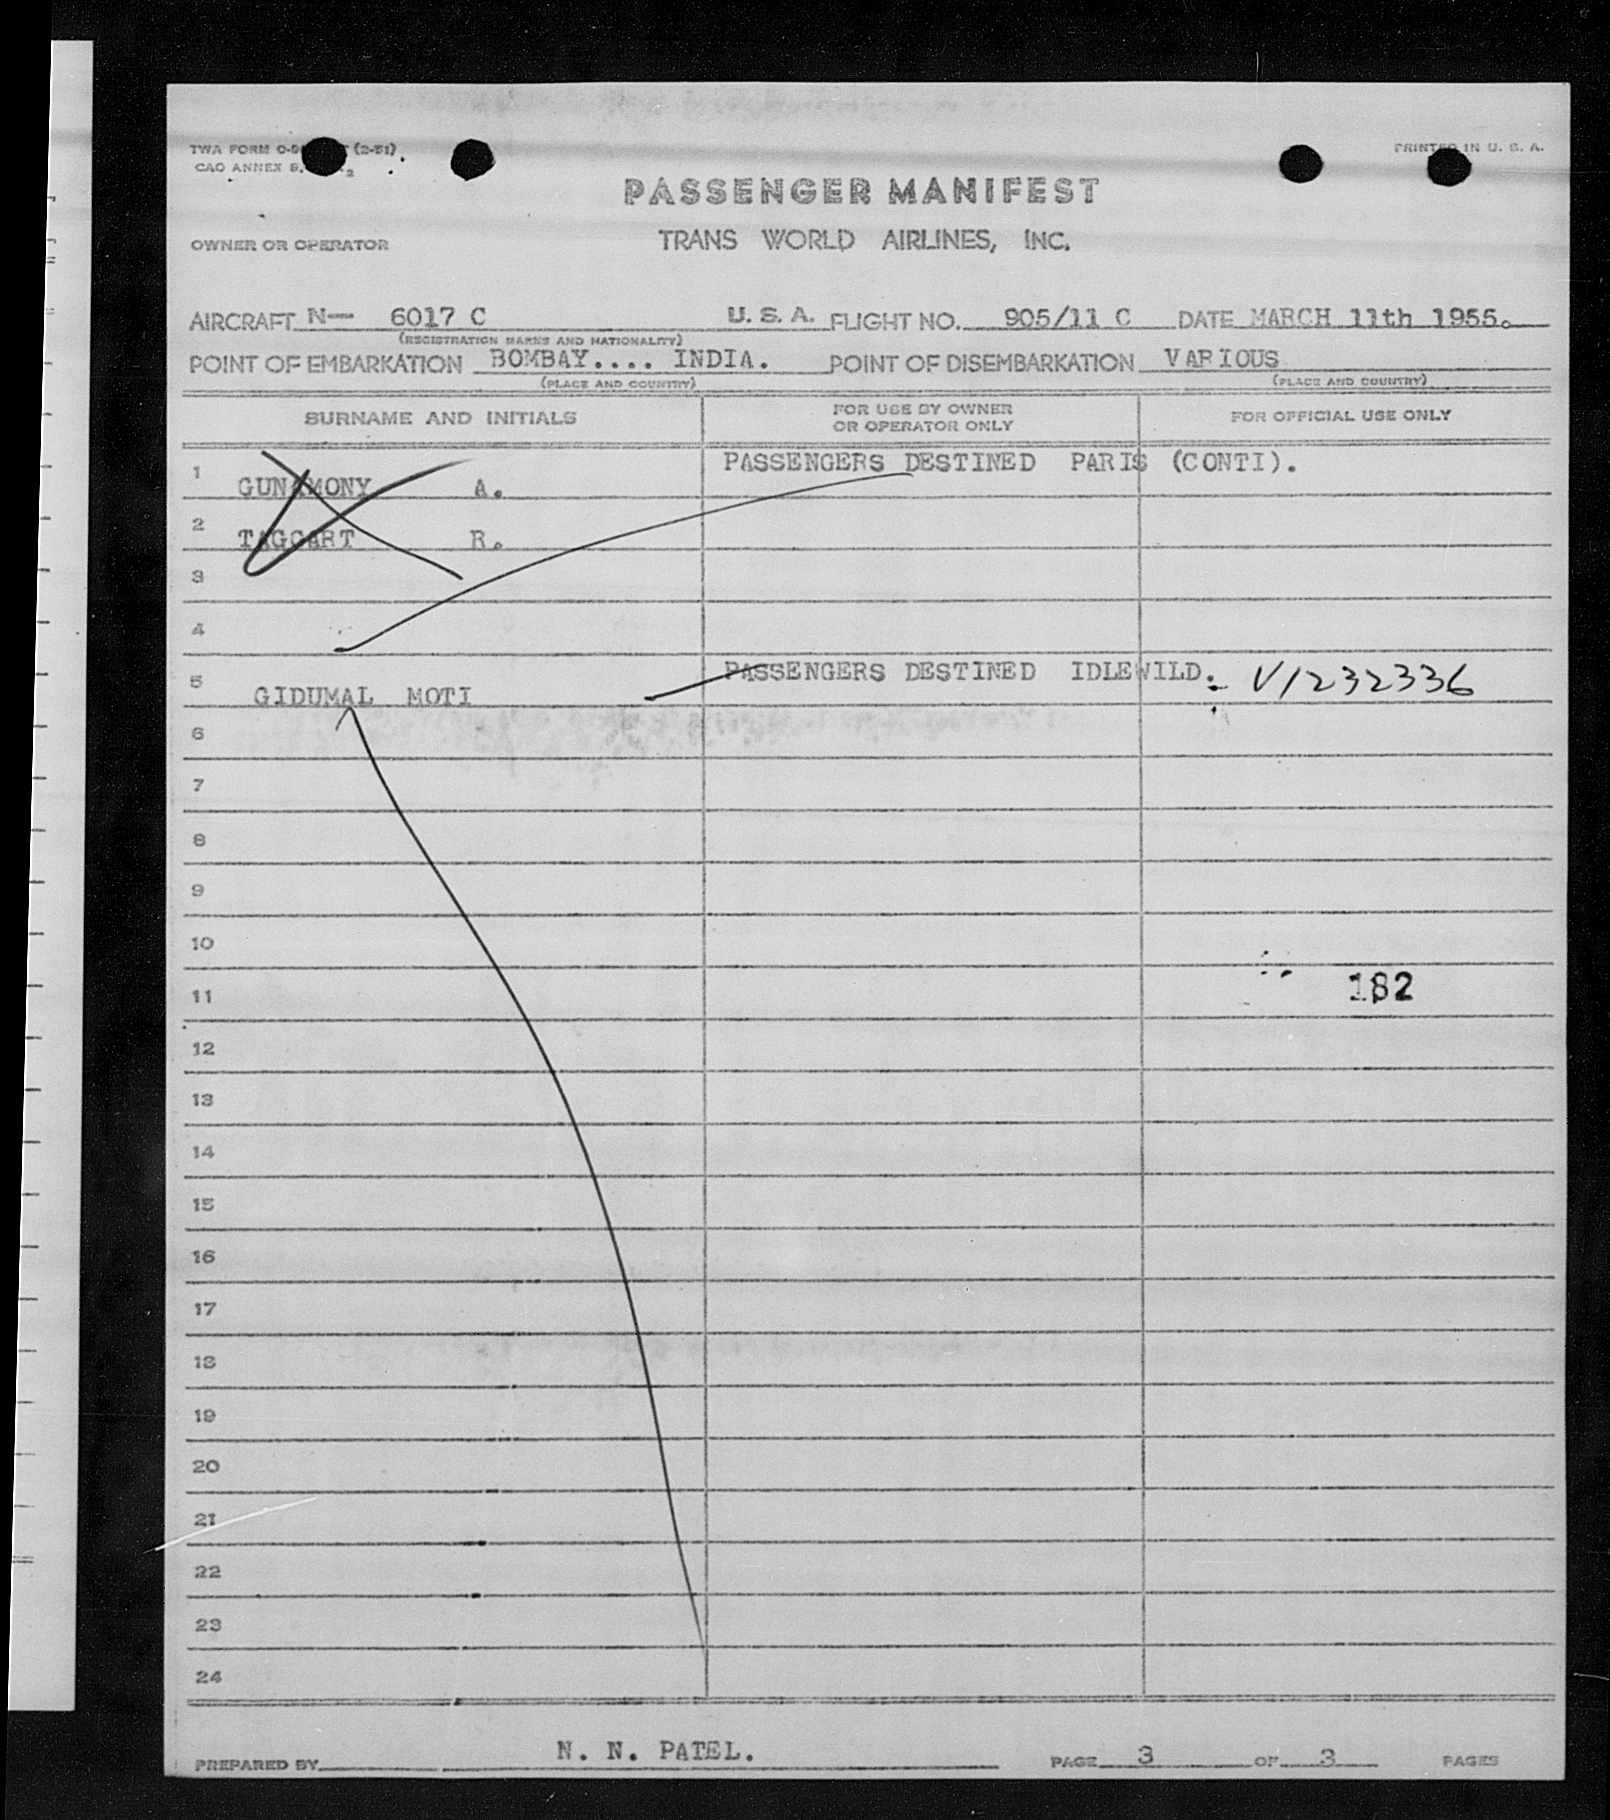 TWA FORM O- (2-51)
PRINTED IN U. S. A.
CAO ANNEX 9,
PASSENGER MANIFEST
OWNER OR OPERATOR
TRANS WORLD AIRLINES, INC.
AIRCRAFT N— 6017 C U. S. A. FLIGHT NO. 905/11 C DATE MARCH 11th 1955.
(REGISTRATION MARKS AND NATIONALITY)
POINT OF EMBARKATION BOMBAY.... INDIA. POINT OF DISEMBARKATION VARIOUS
(PLACE AND COUNTRY) (PLACE AND COUNTRY)
SURNAME AND INITIALS FOR USE BY OWNER OR OPERATOR ONLY FOR OFFICIAL USE ONLY
PASSENGERS DESTINED PARIS (CONTI).
1 GUNAMONY A.
2 TAGGART R.
3
4
PASSENGERS DESTINED IDLEWILD. V1232336
5 GIDUMAL MOTI
6
7
8
9
10
11 182
12
13
14
15
16
17
18
19
20
21
22
23
24
PREPARED BY N. N. PATEL. PAGE 3 OF 3 PAGES